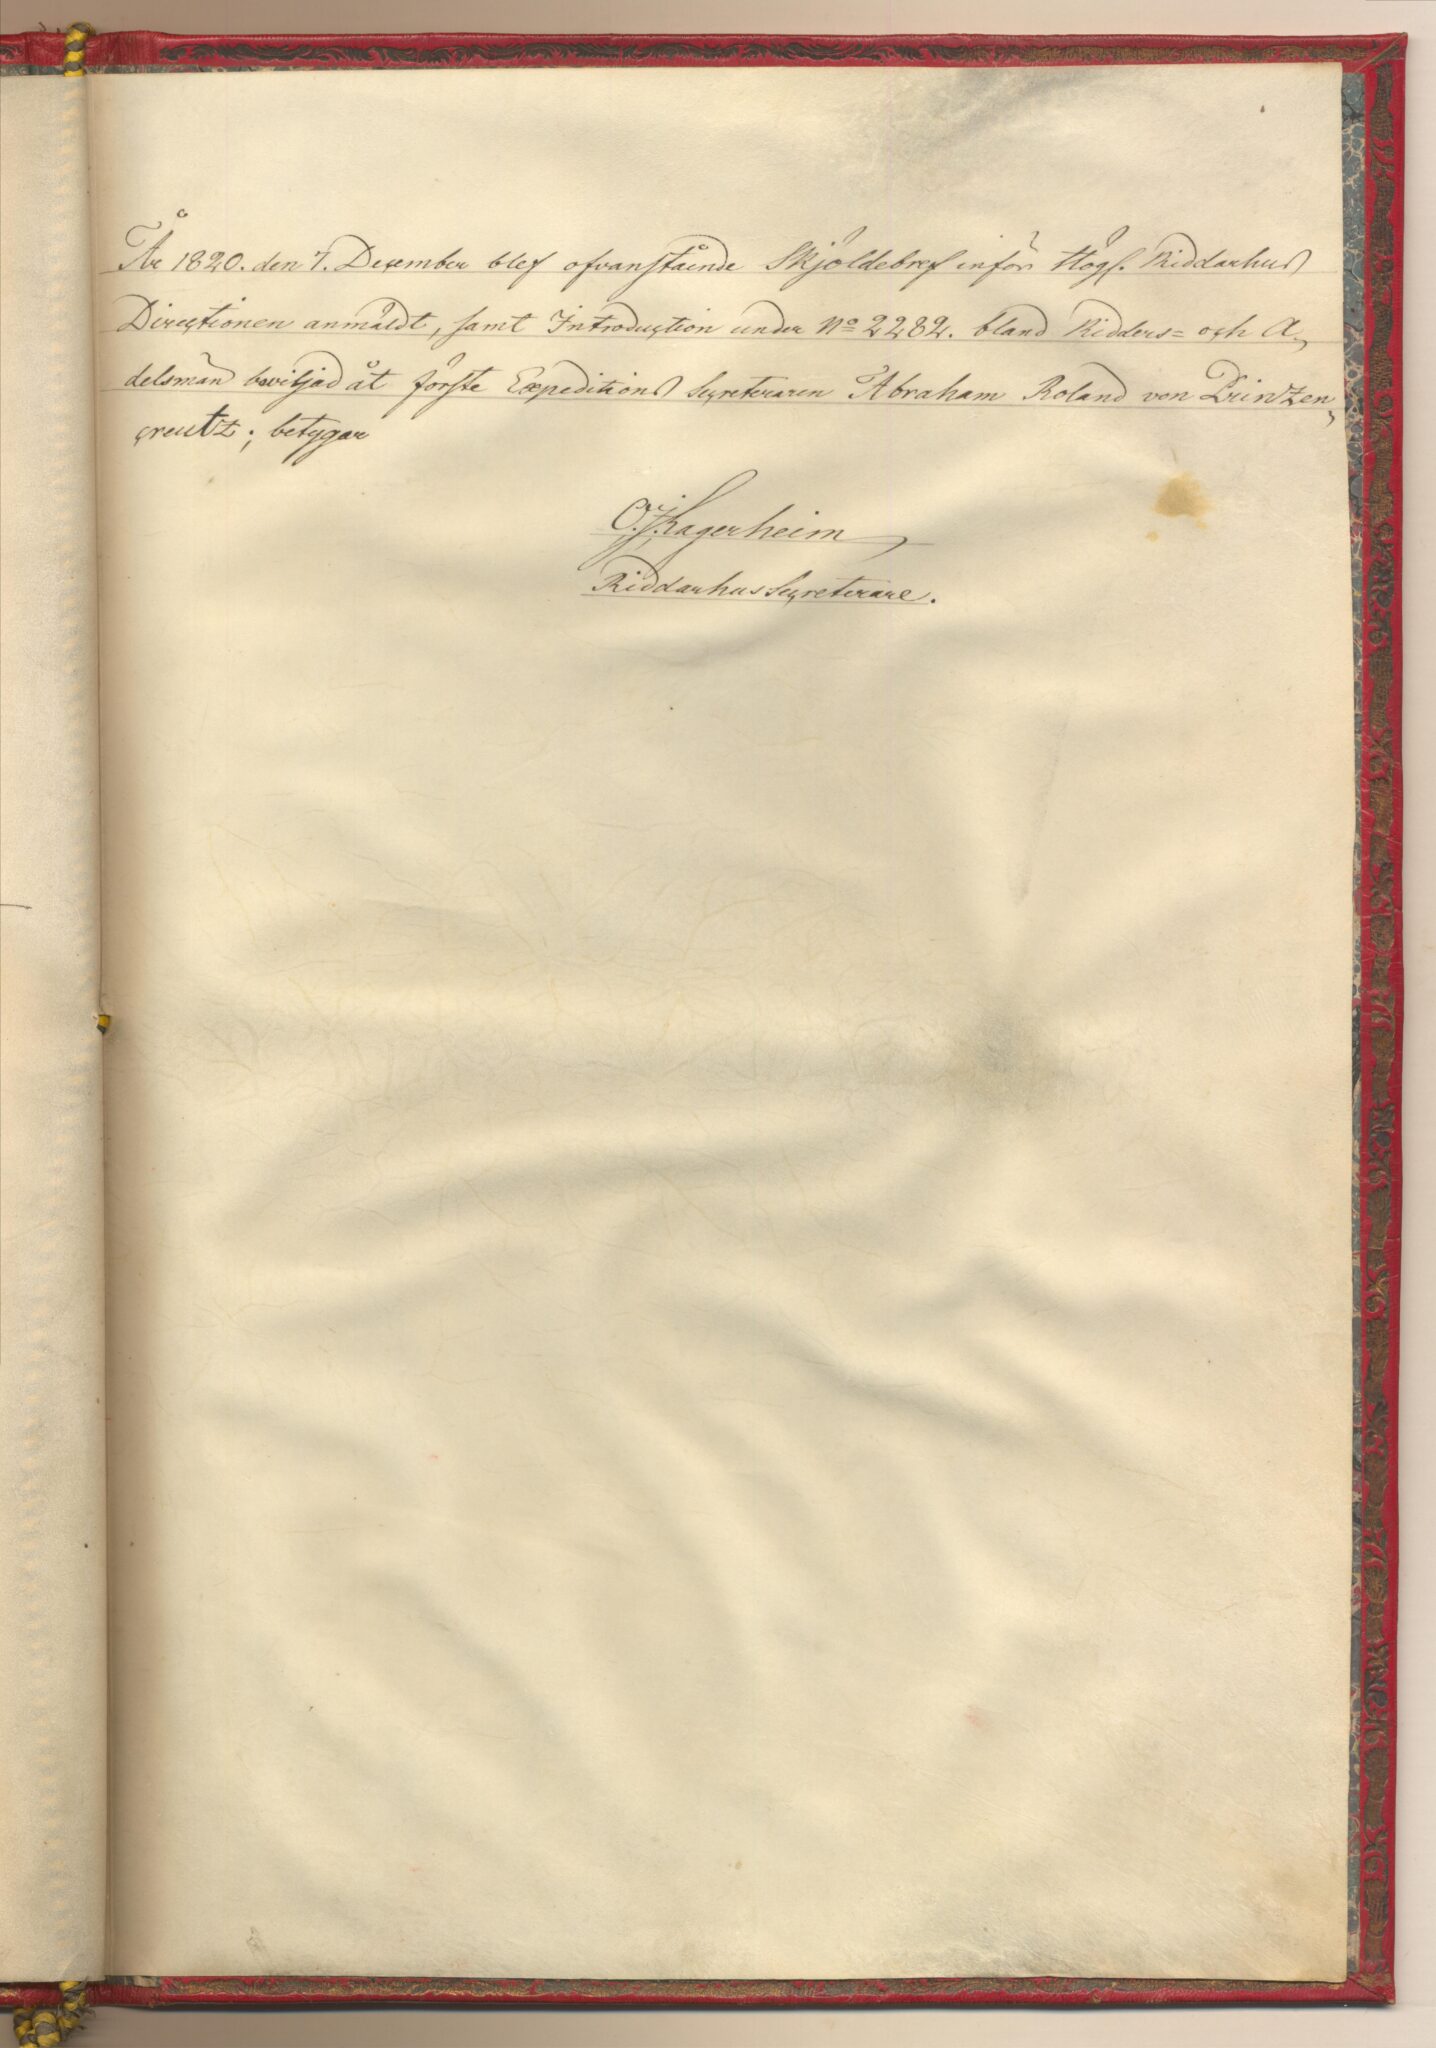 År 1820. den 7. December blef ofvanstående Skjöldebref inför Högl. Riddarhus
Directionen anmäldt, samt Introduction under No 2282. bland Ridders= och A,
delsmän beviljad åt förste Expeditions Secreteraren Abraham Roland von Prinzen,
creutz; betygar
Lagerheim
Riddarhus Secreterare.